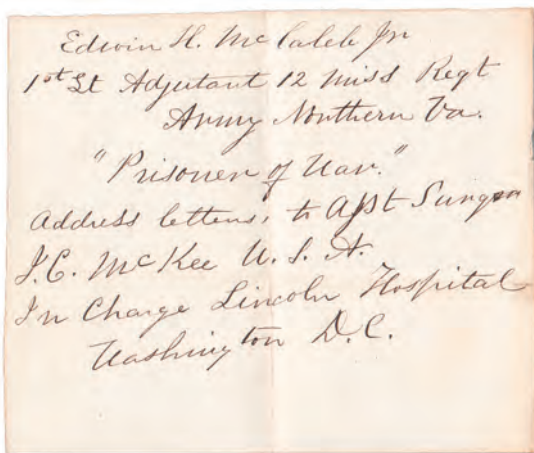 Edwin H. McCaleb Jr
1st Lt Adjutant 12 Miss Regt
Army Northern Va.
"Prisoner of War."
Address letters, to Asst Surgeon
J. C. McKee U. S. A.
In Charge Lincoln Hospital
Washington D. C.